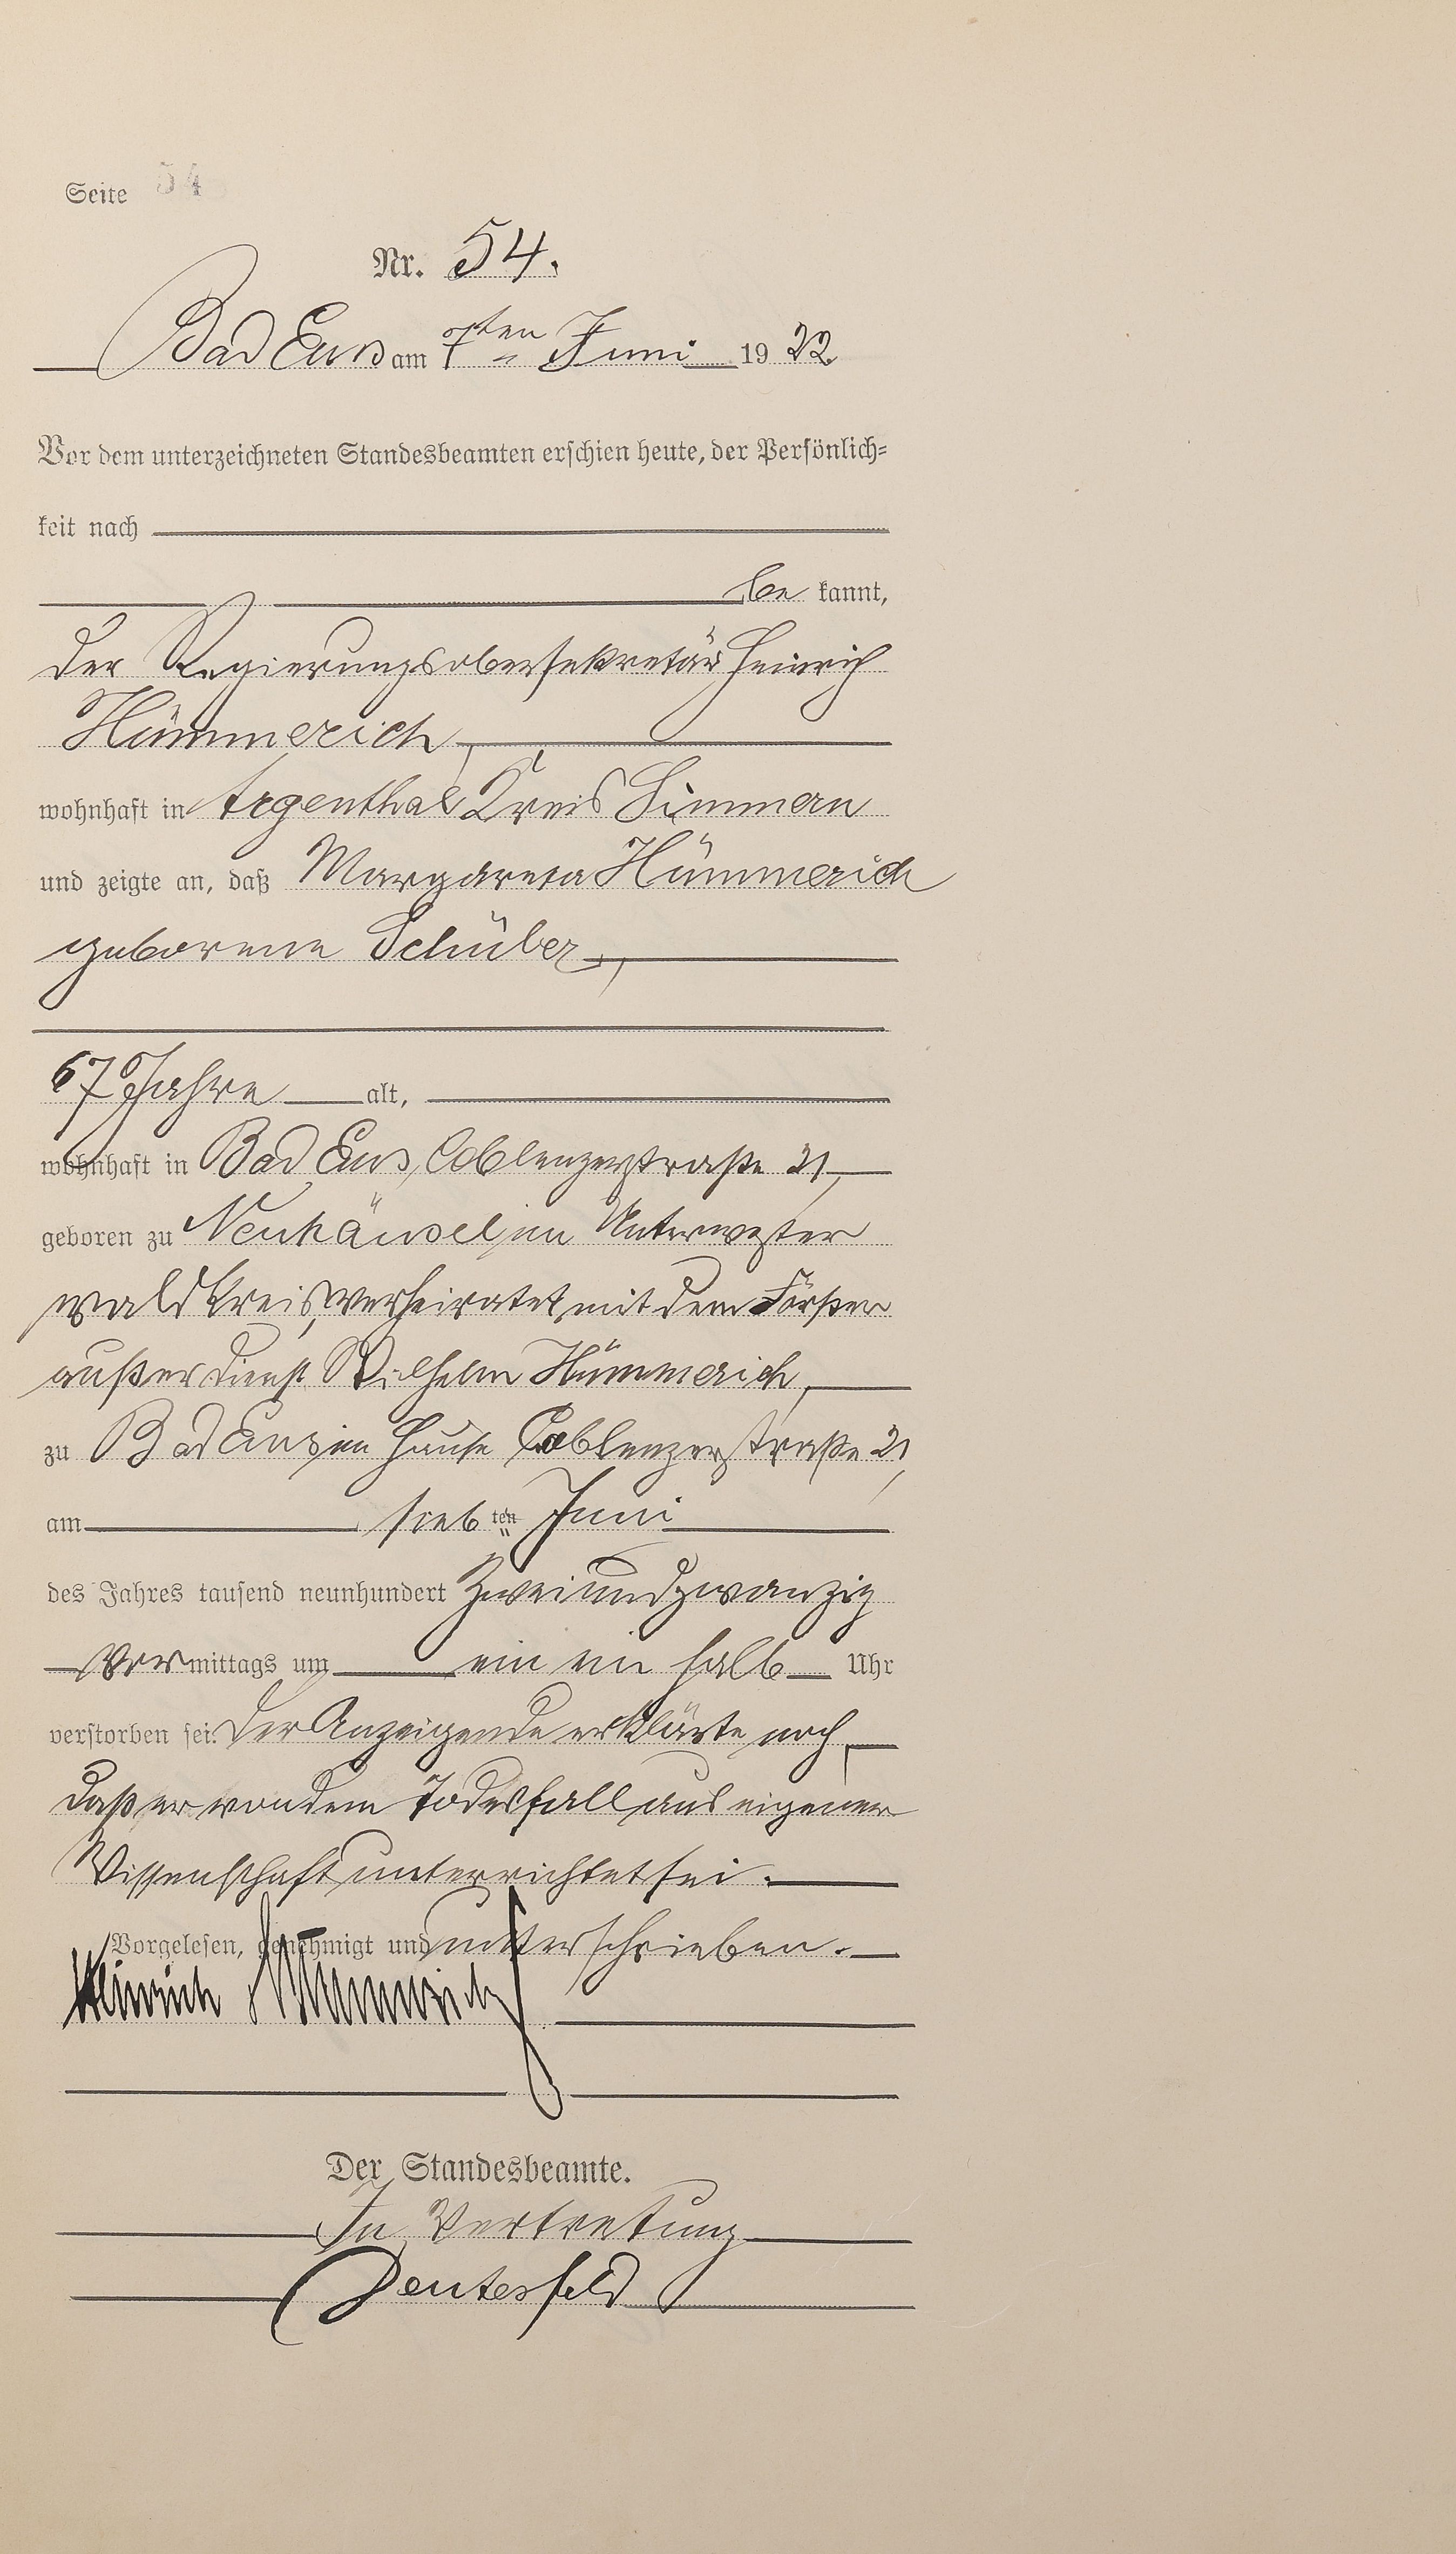 Seite 54
Nr. 54.
Bad Ems am 7ten Juni 1922
Vor dem unterzeichneten Standesbeamten erschien heute, der Persönlich-
keit nach
be kannt,
der Regierungsobersekretär Heinrich
Hümmerich,
wohnhaft in Argenthal Kreis Simmern
und zeigte an, daß Margareta Hümmerich
geborene Schüber,
67 Jahre alt,
wohnhaft in Bad Ems, Coblenzerstraße 21,
geboren zu Neuhäusel im Unterwester
wald Kreis, verheiratet mit dem Förster
außer Dienst Wilhelm Hümmerich,
zu Bad Ems im Hause Coblenzerstraße 21,
am sieb ten Juni
des Jahres tausend neunhundert zweiundzwanzig
Vormittags um ein ein halb Uhr
verstorben sei. Der Anzeigende erklärte noch,
daß er von dem Todesfall aus eigener
Wissenschaft unterrichtet sei.
Vorgelesen, genehmigt und unterschrieben.
Heinrich Hümmerich
Der Standesbeamte.
In Vertretung
Deutesfeld